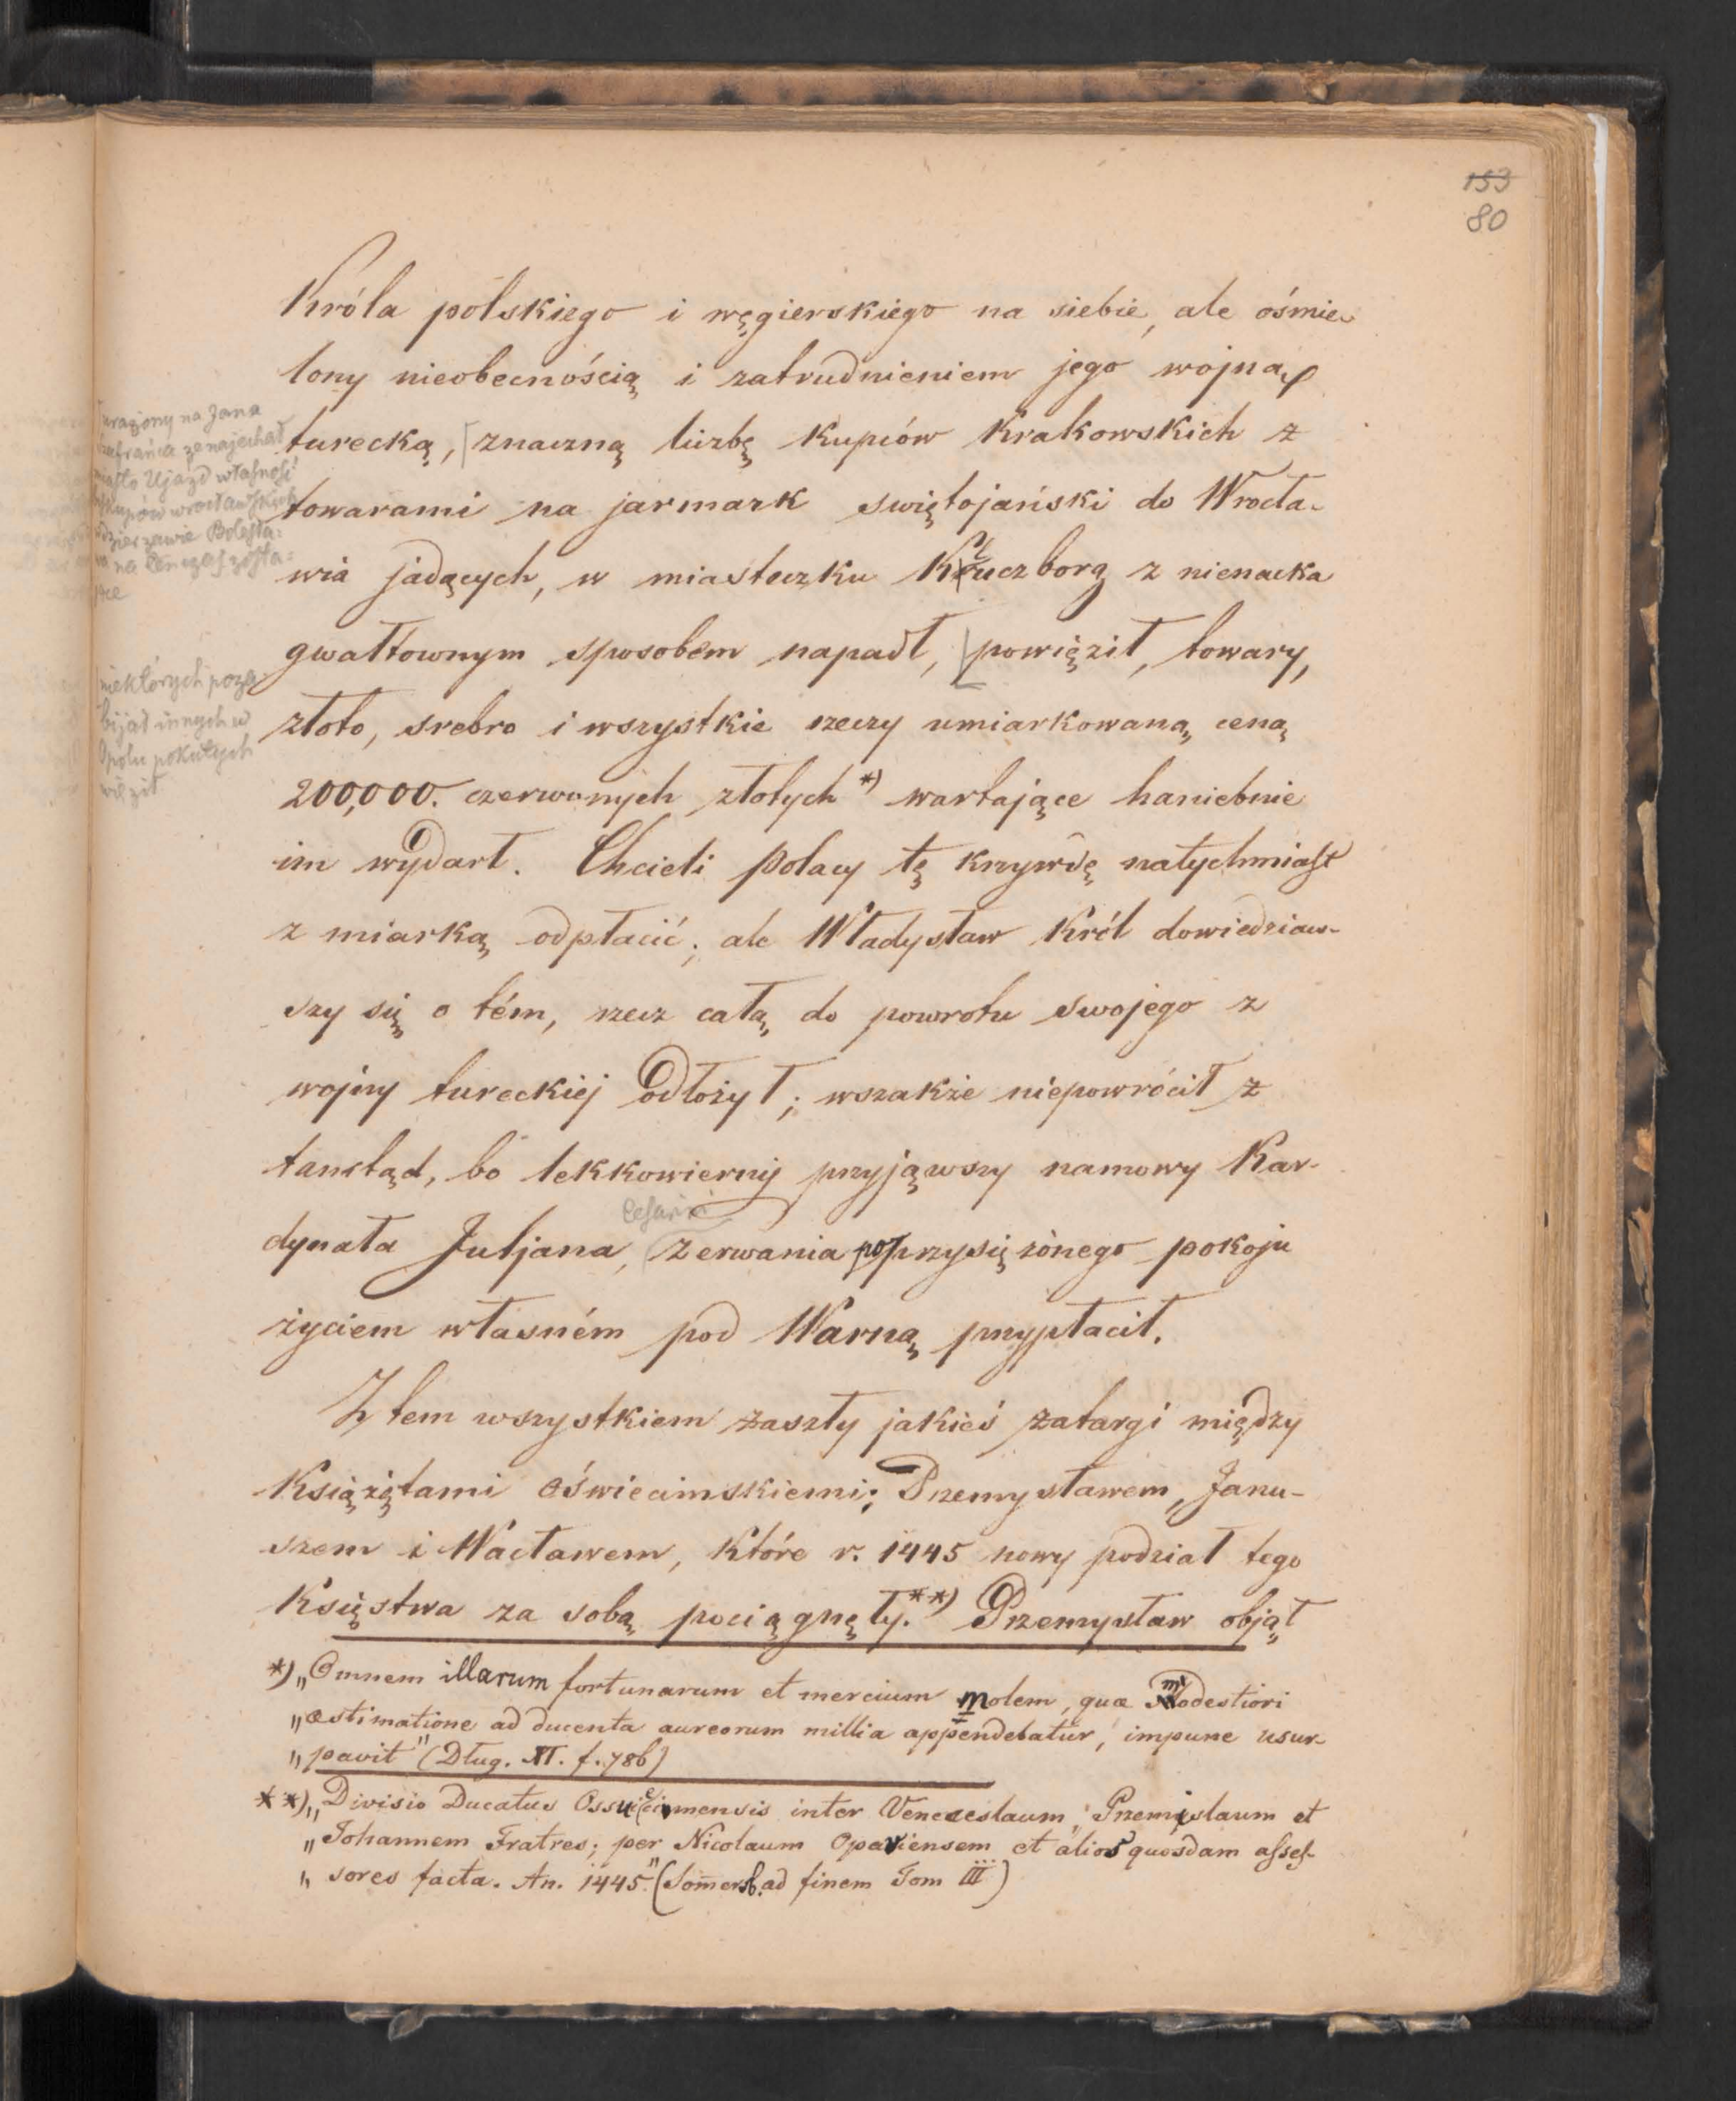 153
80
Króla polskiego i węgierskiego na siebie, ale ośmie-
lony nieobecnością i zatrudnieniem jego wojną
turecką, znaczną liczbę kupców Krakowskich z
towarami na jarmark swiętojański do Wrocła-
wia jadących, w miasteczku Kluczborg z nienacka
gwałtownym sposobem napadł, powięził, towary,
złoto, srebro i wszystkie rzeczy umiarkowaną ceną
200,000. czerwonych złotych *) wartające haniebnie
im wydarł. Chcieli Polacy tę krzywdę natychmiast
z miarką odpłacić; ale Władysław Król dowiedziaw-
szy się o tém, rzecz całą do powrotu swojego z
wojny tureckiej odłożył; wszakże niepowrócił z
tamtąd, bo lekkowierny przyjąwszy namowy Kar-
Cesarini
dynała Juljana, zerwania poprzysiężonego pokoju
życiem własném pod Warną przypłacił.
Z tem wszystkiem zaszły jakieś zatargi między
Książętami Oświecimskiemi; Przemysławem, Janu-
szem i Wacławem, które r. 1445 nowy podział tego
Księstwa za sobą pociągnęły. **) Przemysław objął
urażony na Jana
Szafrańca że najechał
miasto Ujazd własność
biskupów wrocławskich
w dzierzawie Bolesła=
wa na tenczas zosta=
jące
niektórych poza-
bijał innych w
Opolu pokutych
więził
*) „Omnem illarum fortunarum et mercium molem, quæ modestiori
„æstimatione ad ducenta aureorum millia appendebatur, impune usur-
„pavit" (Dług. XI. f. 786)
**) „Divisio Ducatus Ossuiecimensis inter Venceslaum, Przemislaum et
„Johannem Fratres; per Nicolaum Opaviensem et alios quosdam asses-
„sores facta. An. 1445." (Somersb. ad finem Tom III)